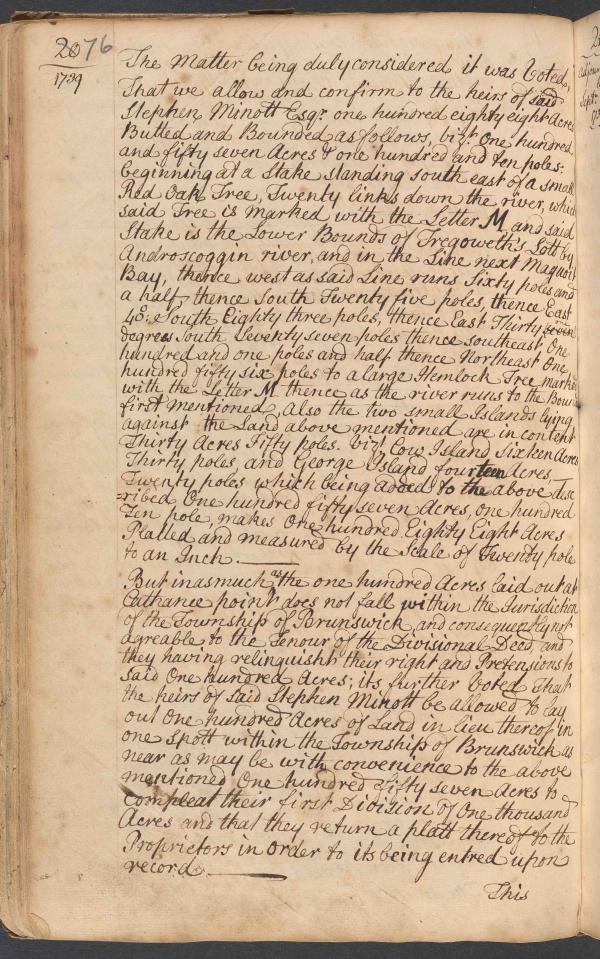 2076
1739
The Matter being duly considered it was Voted,
That we allow and confirm to the heirs of said
Stephen Minott Esqr. one hundred eighty eight Acres
Butted and Bounded as follows, vizt. One hundred
and fifty seven Acres & one hundred and ten poles:
beginning at a Stake standing south east of a small
Red Oak Tree, Twenty links down the river, which
said Tree is marked with the Letter M, and said
Stake is the Lower Bounds of Tregoweth's Lott by
Androscoggin river, and in the Line next Maquoit
Bay, thence west as said Line runs Sixty poles and
a half, thence South Twenty five poles, thence East
40: South Eighty three poles, thence East Thirty seven
degrees South Seventy seven poles thence southeast One
hundred and one poles and half thence Northeast One
hundred fifty six poles to a large Hemlock Tree marked
with the Letter M thence as the river runs to the Bounds
first mentioned, also the two small Islands lying
against the Land above mentioned are in content
Thirty Acres Fifty poles. vizt. Cow Island Sixteen Acres
Thirty poles, and George Island fourteen Acres,
Twenty poles which being added to the above disc
=ribed One hundred fifty seven Acres, one hundred
Ten pole, makes One hundred Eighty Eight Acres
Platted and measured by the Scale of Twenty pole
to an Inch.
But inasmuch as the one hundred Acres laid out at
Cathance point does not fall within the Jurisdiction
of the Township of Brunswick and consequently not
agreable to the Tenour of the Divisional Deed, and
they having relinquisht their right and Pretensions to
said One hundred Acres; its further Voted That
the heirs of said Stephen Minott be allowed to lay
out One hundred Acres of Land in lieu thereof in
one Spott within the Township of Brunswick as
near as may be with convenience to the above
mentioned One hundred fifty seven Acres to
compleat their first Division of One thousand
Acres and that they return a platt thereof to the
Proprietors in order to its being entred upon
record.
This
2
adjour
Sept.